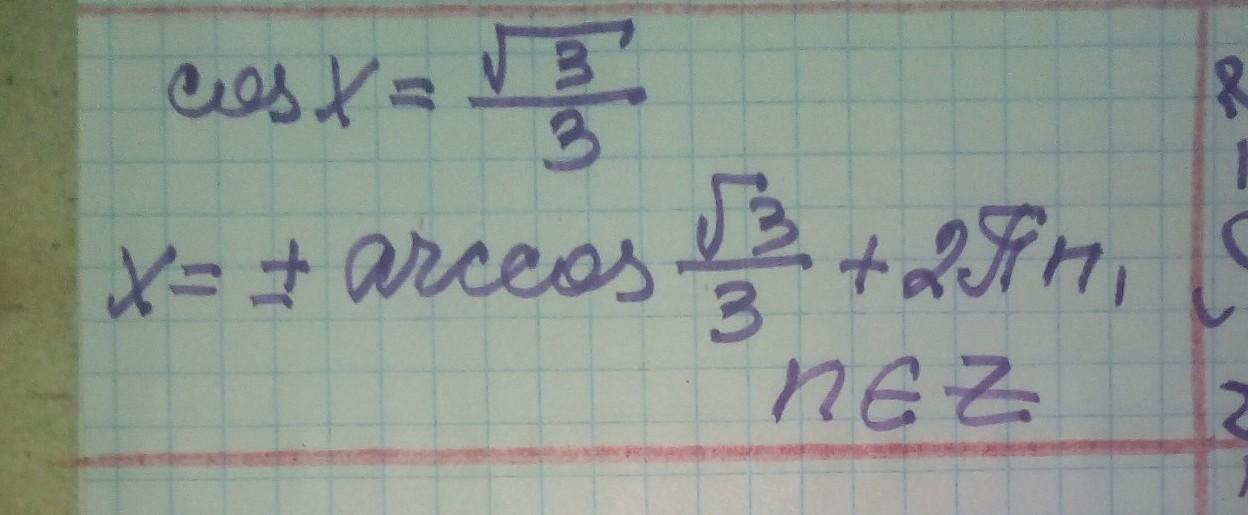 cos x = √3/3
x = ± arccos √3/3 + 2πn,
n ∈ Z